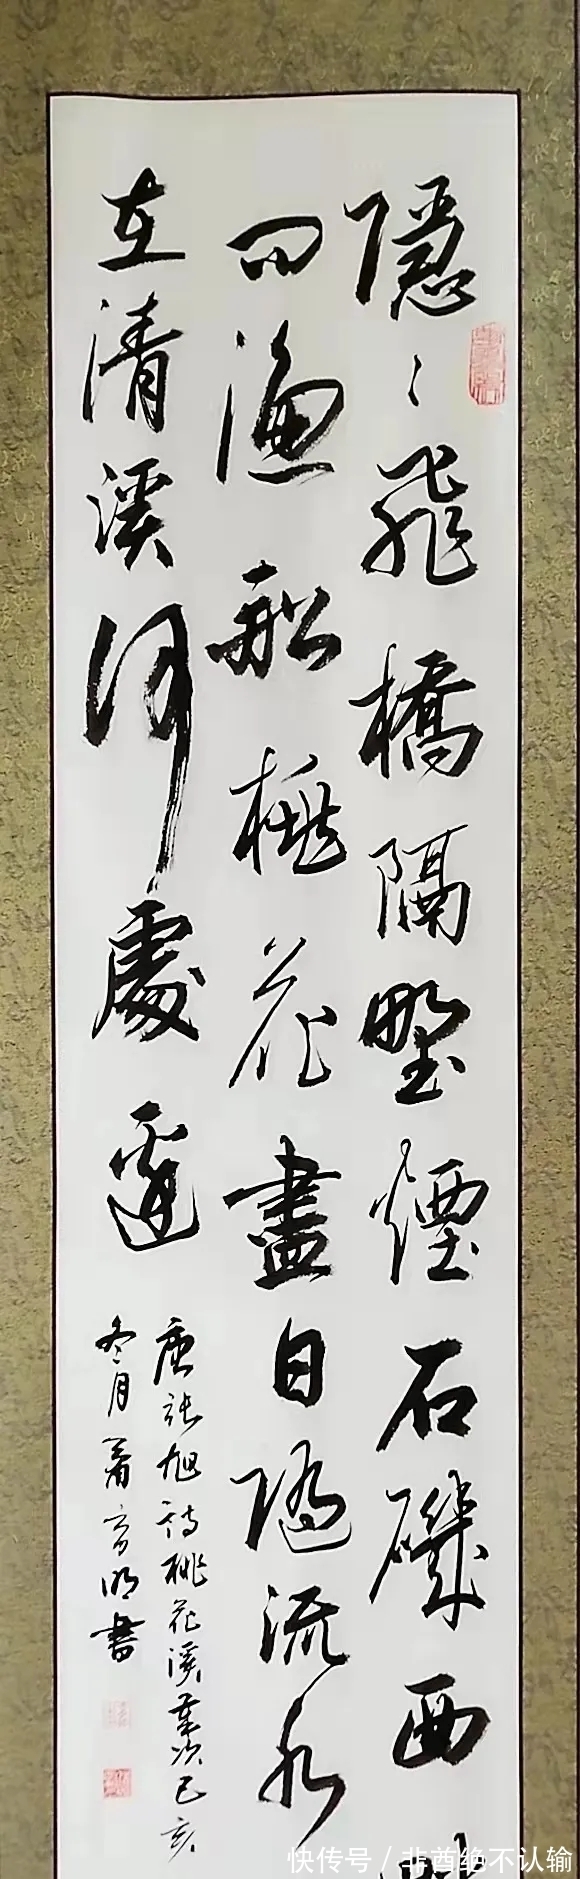 隱〻飛橋隔野煙石磯西
問漁船桃花盡日隨流水
在清溪何處邊
唐張旭詩桃花溪歲次己亥
冬月 明書
快传号/非酋绝不认输